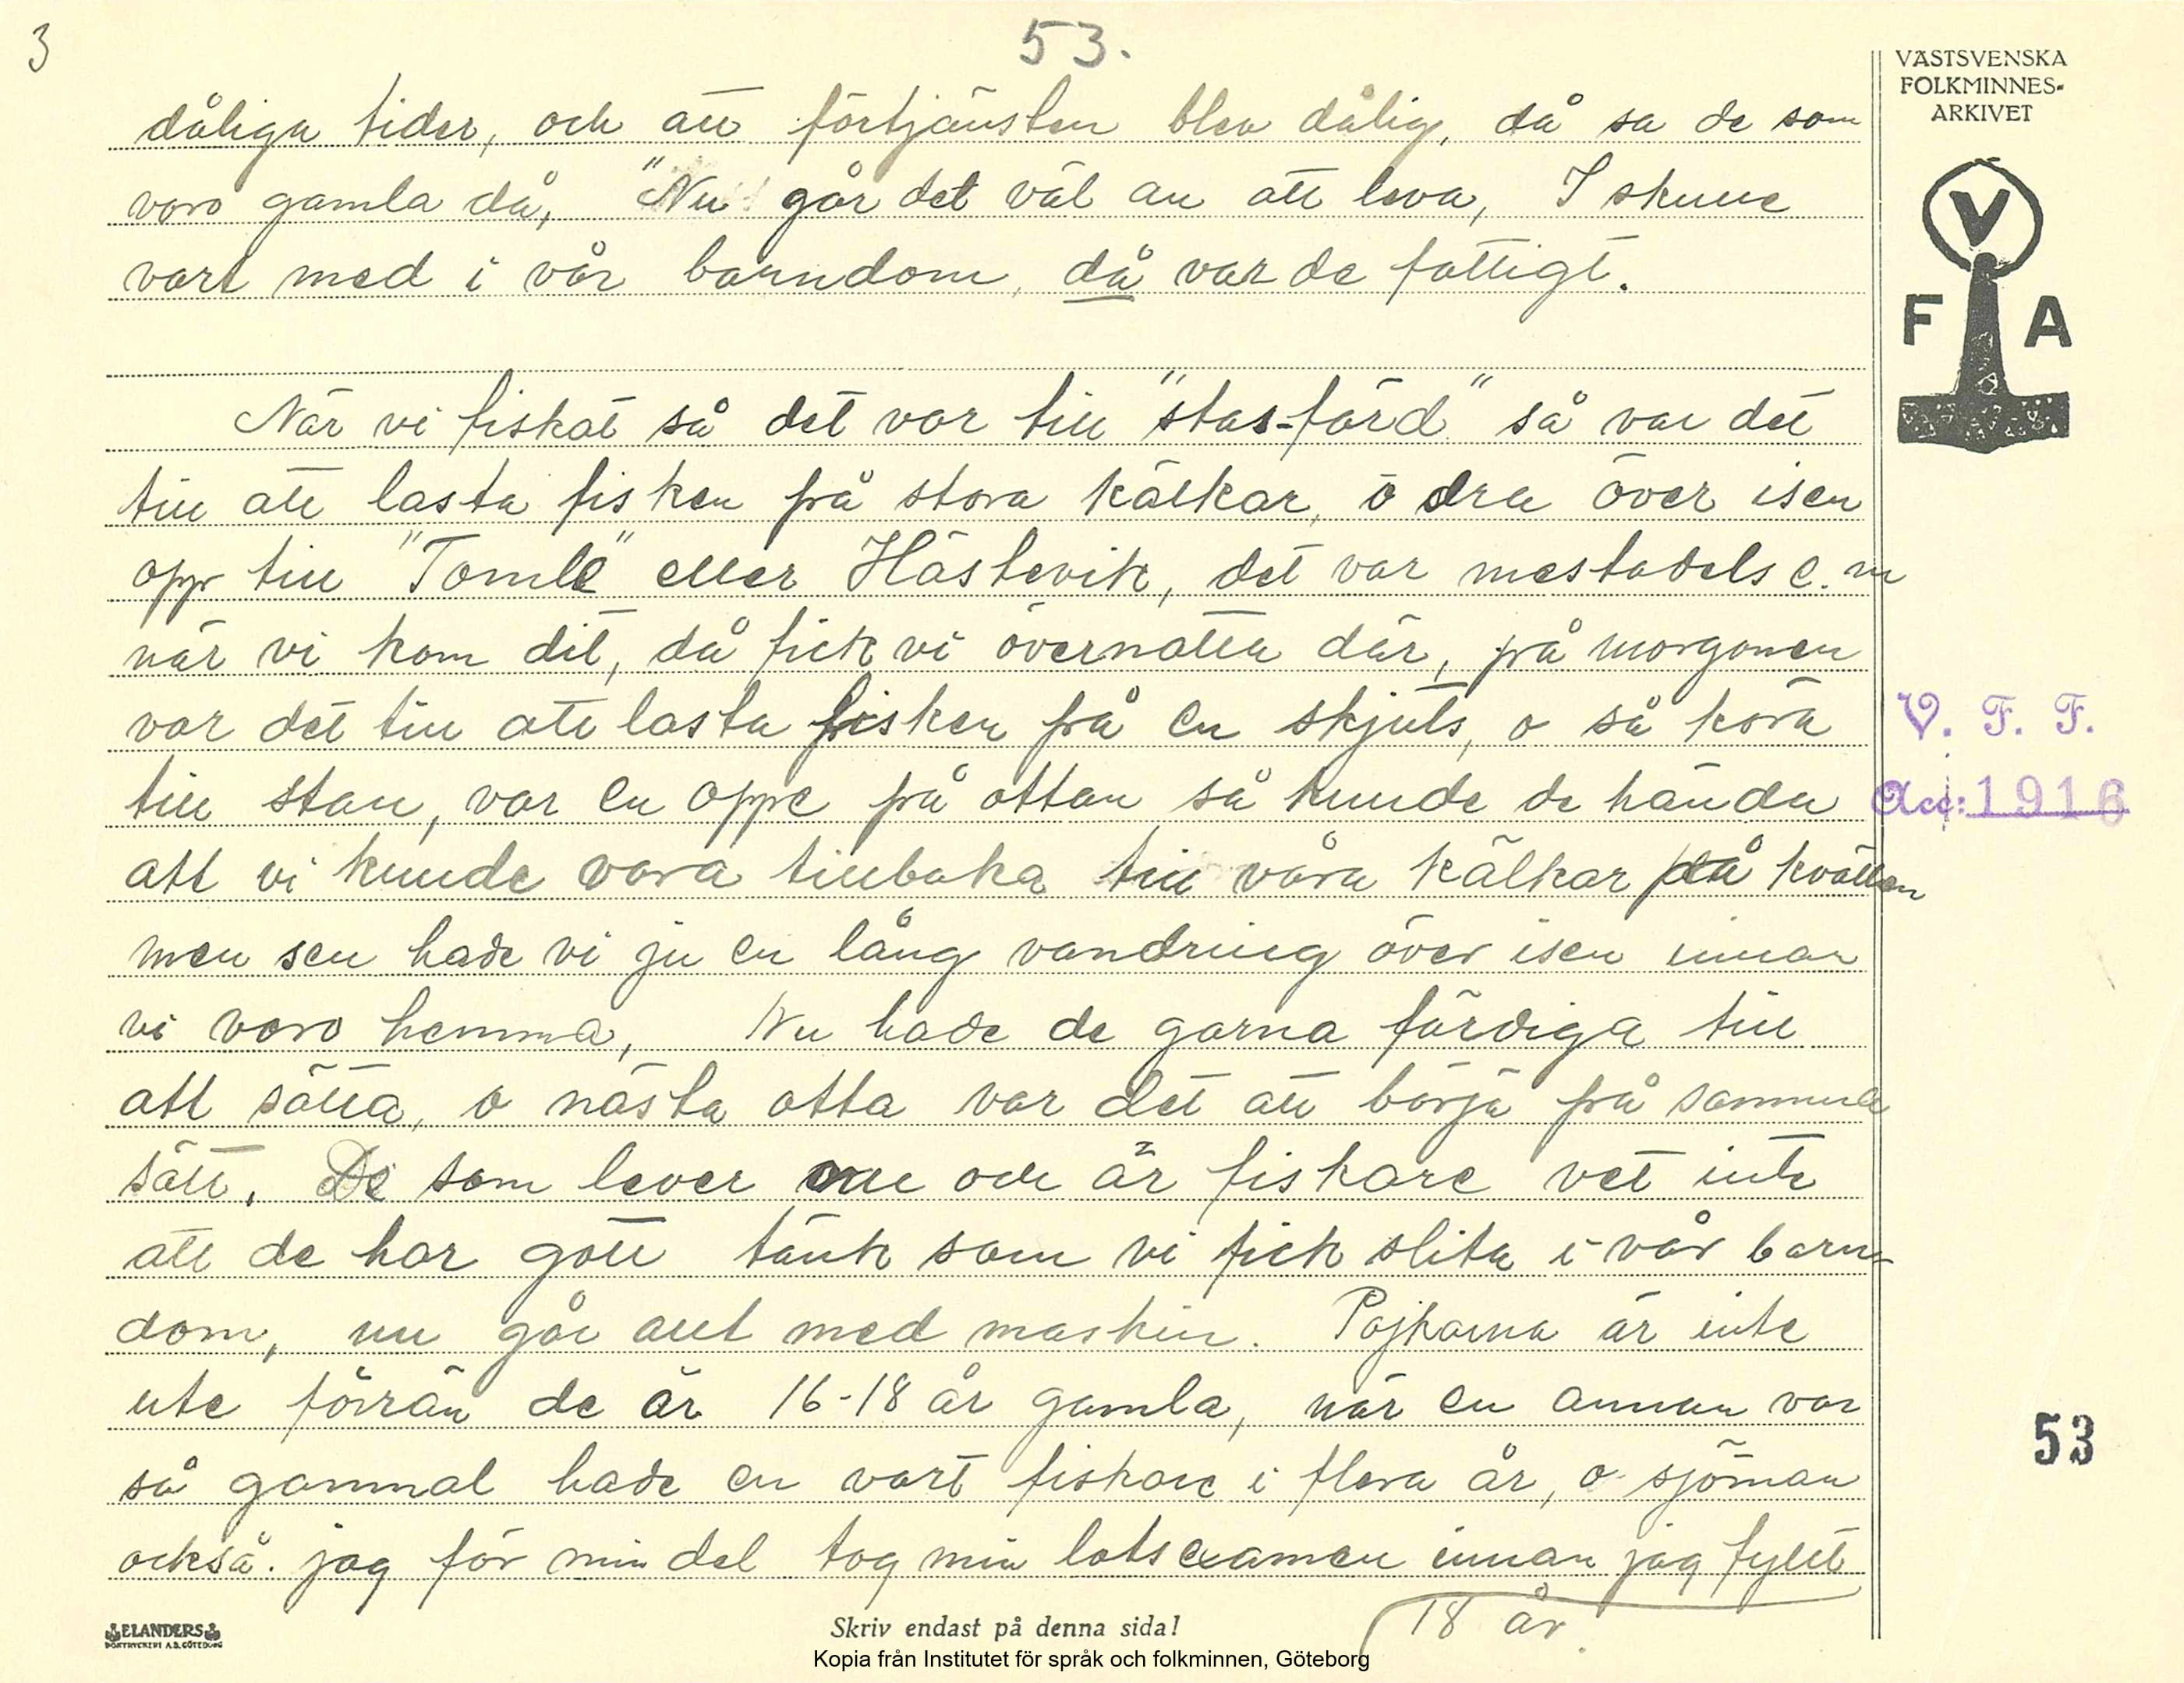 3
53.
VÄSTSVENSKA
FOLKMINNES-
ARKIVET
V
F A
dåliga tider, och att förtjänsten blev dålig, då sa de som
voro gamla då, "Nu går det väl an att leva, I skulle
vart med i vår barndom, då var de fattigt.
När vi fiskat så det var till "stas-färd" så var det
till att lasta fisken på stora kälkar, o dra över isen
opp till "Tomle" eller Hästevik, det var mestadels e.m
när vi kom dit, då fick vi övernatta där, på morgonen
var det till att lasta fisken på en skjuts, o så köra
till stan, var en oppe på ottan så kunde de hända
att vi kunde vara tillbaka till våra kälkar på kvällen
men sen hade vi ju en lång vandring över isen innan
vi voro hemma, Nu hade de garna färdiga till
att sätta, o nästa otta var det att börja på samma
sätt. De som lever nu och är fiskare vet inte
att de har gott tänk som vi fick slita i vår barn-
dom, nu går allt med maskin. Pojkarna är inte
ute förrän de är 16-18 år gamla, när en annan var
så gammal hade en vart fiskare i flera år, o sjöman
också. jag för min del tog min lotsexamen innan jag fyllt
18 år.
V. F. F.
Acc: 1916
53
ELANDERS
BOKTRYCKERI A.B. GÖTEBORG
Skriv endast på denna sida!
Kopia från Institutet för språk och folkminnen, Göteborg